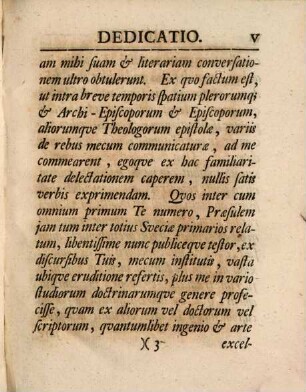 DEDICATIO. V
am mihi suam & literariam conversatio-
nem ultro obtulerunt. Ex qvo factum est,
ut intra breve temporis spatium plerorumqɜ
& Archi-Episcoporum & Episcoporum,
aliorumqve Theologorum epistolæ, variis
de rebus mecum communicaturæ, ad me
commearent, egoqve ex hac familiari-
tate delectationem caperem, nullis satis
verbis exprimendam. Qvos inter cum
omnium primum Te numero, Præsulem
jam tum inter totius Sveciæ primarios rela-
tum, libentissime nunc publiceqve testor, ex
discursibus Tuis, mecum institutis, vasta
ubiqve eruditione refertis, plus me in vario
studiorum doctrinarumqve genere profe-
cisse, qvam ex aliorum vel doctorum vel
scriptorum, qvantumlibet ingenio & arte
)( 3 excel-